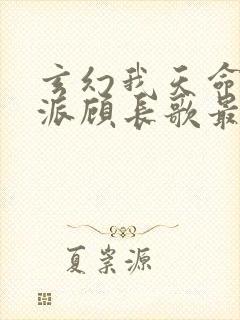 玄幻我天命
派顾长歌最
夏崇源